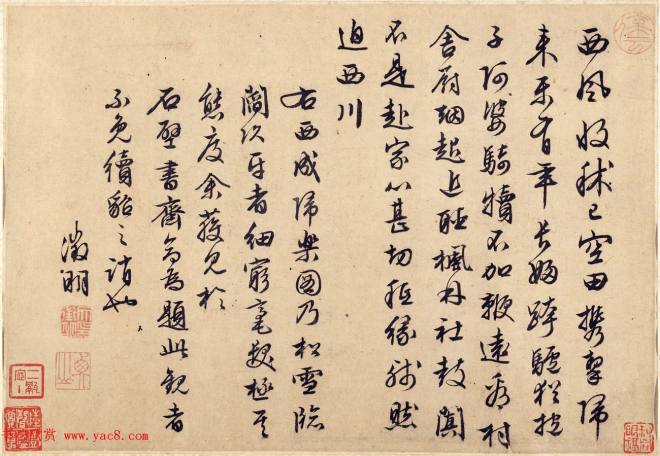 西風收秫已空田携挈歸
来樂有年長婦跨驢猶抱
子阿婆騎犢不加鞭遠看村
舍厨烟起近聽楓林社鼓闐
不是赴家心甚切秪緣殘照
迫西川
右西成歸樂圖乃松雪臨
閻次平者細窮毫髮極其
態度余獲見於
石壁書齋命為題此観者
不免續貂之誚也
徵明
赏 www.yac8.com